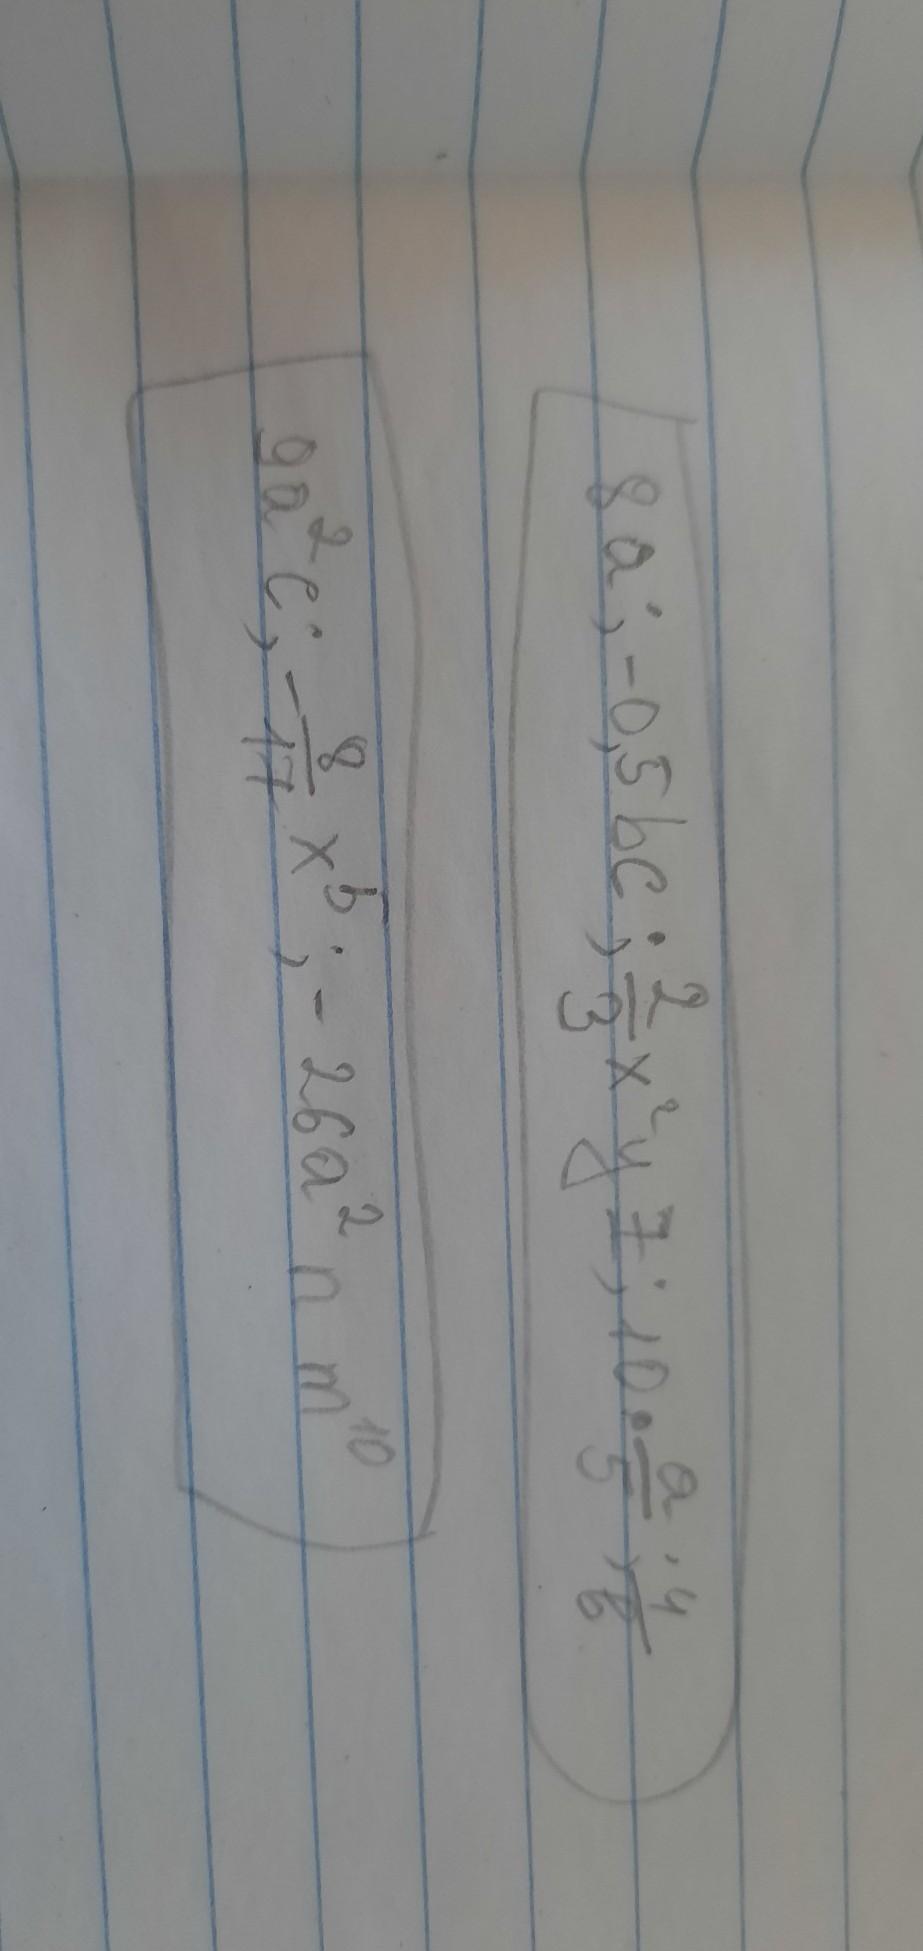 8a; -0,5bc; 2/3 x² y 7; 10 • a/5; 4/6
9a² c; - 8/17 x⁵; - 26a² n m¹⁰